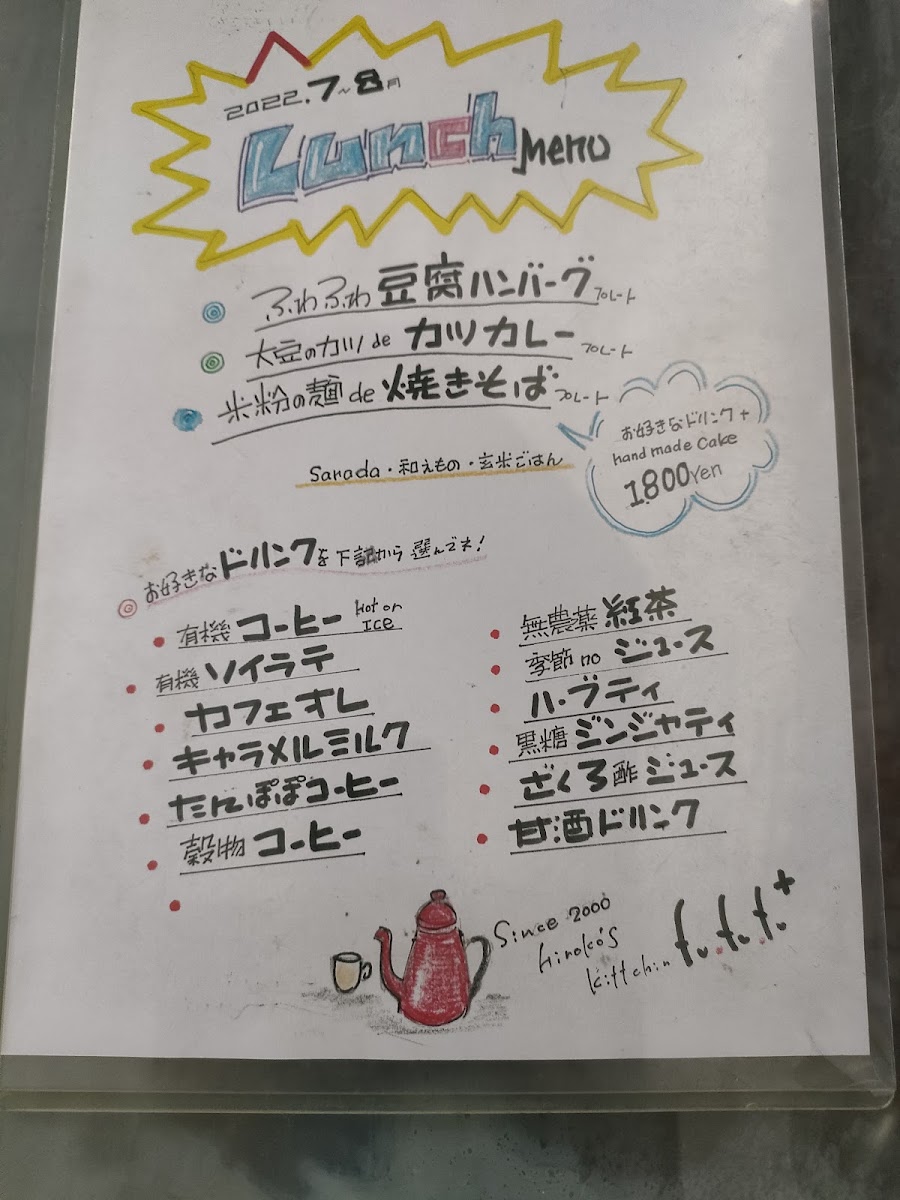 2022.7~8月
Lunch Menu
ふわふわ 豆腐ハンバーグ プレート
大豆のカツ de カツカレー プレート
米粉の麺 de 焼きそば プレート
お好きなドリンク +
hand made Cake
1.800Yen
Sarada・和えもの・玄米ごはん
お好きなドリンクを下記から選んでネ!
有機 コーヒー Hot or ICe
有機 ソイラテ
カフェオレ
キャラメルミルク
たんぽぽコーヒー
穀物 コーヒー
無農薬 紅茶
季節 no ジュース
ハーブティ
黒糖 ジンジャティ
ざくろ酢 ジュース
甘酒ドリンク
Since 2000
hiroko's
kittchin f.f.f.+